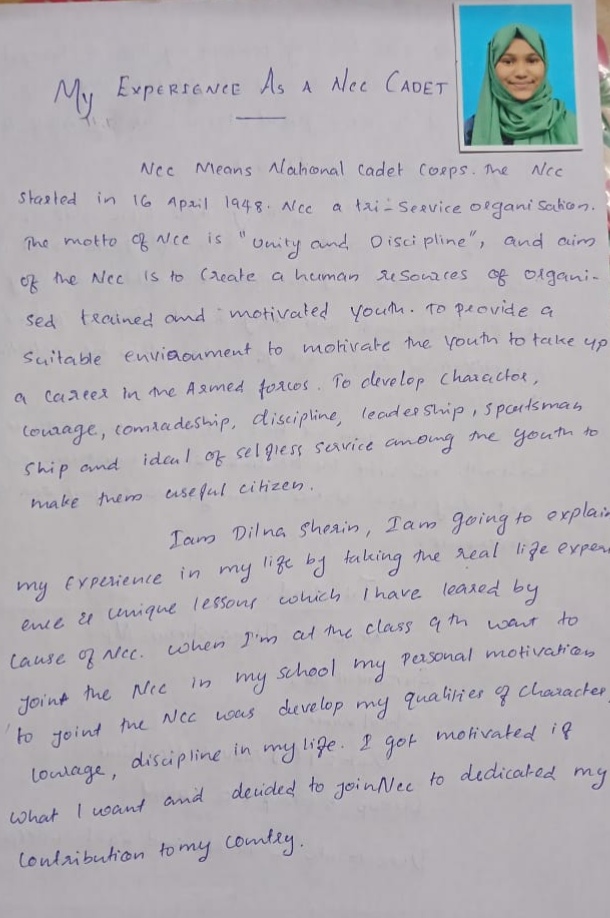 My Experience As A Ncc Cadet
Ncc Means National Cadet Corps. The Ncc
started in 16 April 1948. Ncc a tri-Service organisation.
The motto of Ncc is "Unity and Discipline", and aim
of the Ncc is to Create a human resources of organi-
sed trained and motivated youth. To provide a
suitable environment to motivate the youth to take up
a career in the Armed forces. To develop charactor,
courage, comradeship, discipline, leadership, sportsman
ship and ideal of selfless service among the youth to
make them useful citizen.
Iam Dilna Sherin, Iam going to explain
my experience in my life by taking the real life experi
ence & unique lessons which I have leared by
cause of Ncc. when I'm at the class 9th want to
joint the Ncc in my school my personal motivation
to joint the Ncc was develop my qualities of character,
courage, discipline in my life. I got motivated if
what I want and decided to join Ncc to dedicated my
contribution to my country.